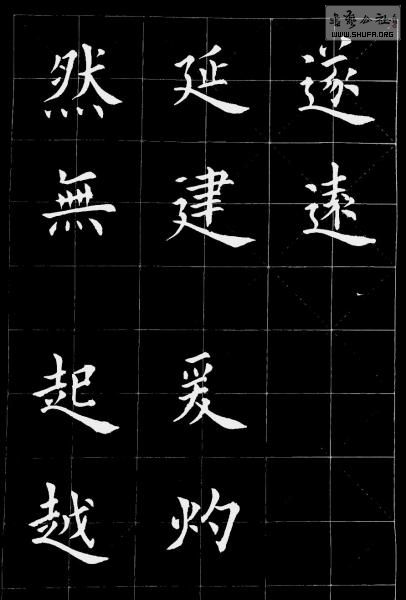 書藝公社
WWW.SHUFA.ORG
遂遠
延建爰灼
然無起越